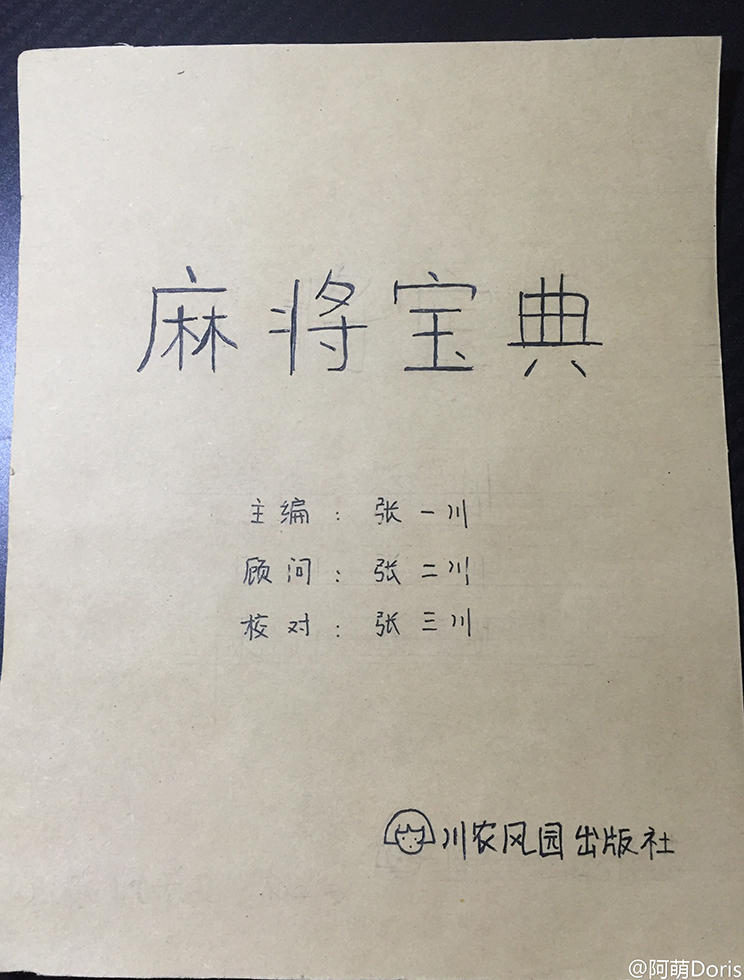 麻将宝典
主编：张一川
顾问：张二川
校对：张三川
川农风园出版社
@阿萌Doris